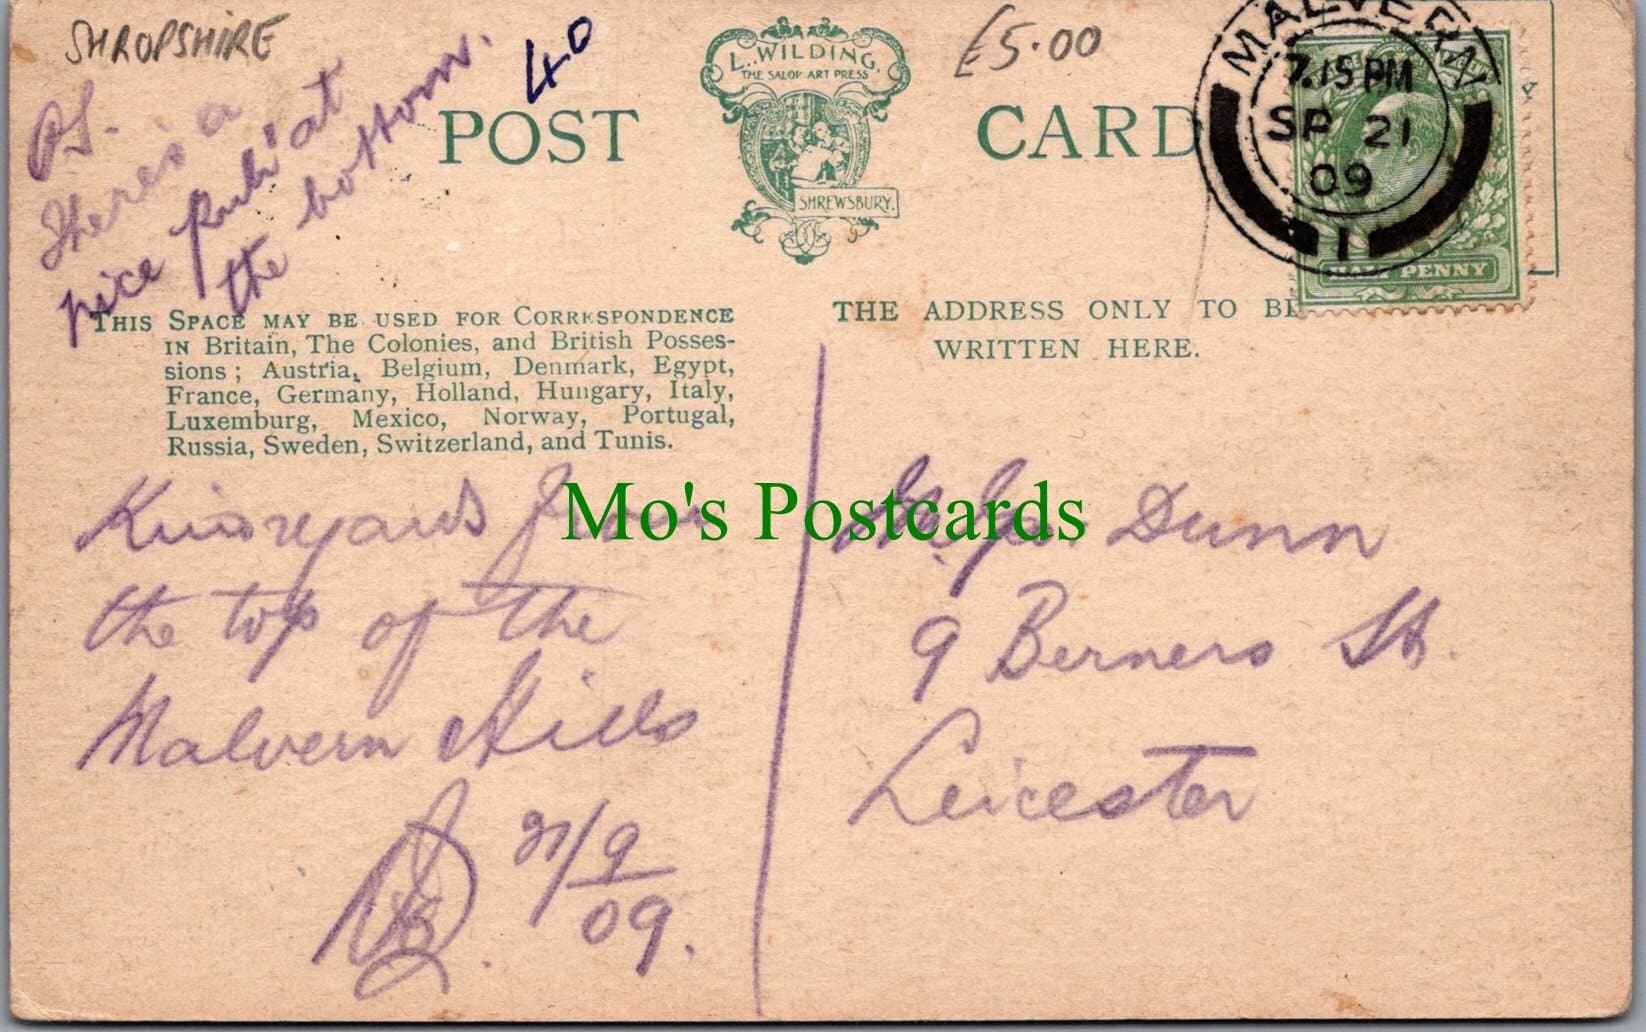 SHROPSHIRE
40
£5.00
P.S.
There's a
nice pub' at
the bottom.
L. WILDING,
THE SALOP ART PRESS
SHREWSBURY.
POST CARD
MALVERN
7.15 PM
SP 21
09
1
HALF PENNY
THIS SPACE MAY BE USED FOR CORRESPONDENCE
IN Britain, The Colonies, and British Posses-
sions; Austria, Belgium, Denmark, Egypt,
France, Germany, Holland, Hungary, Italy,
Luxemburg, Mexico, Norway, Portugal,
Russia, Sweden, Switzerland, and Tunis.
THE ADDRESS ONLY TO BE
WRITTEN HERE.
Kind regards from
the top of the
Malvern Hills
21/9
09.
Mo's Postcards
Dunn
9 Berners St.
Leicester